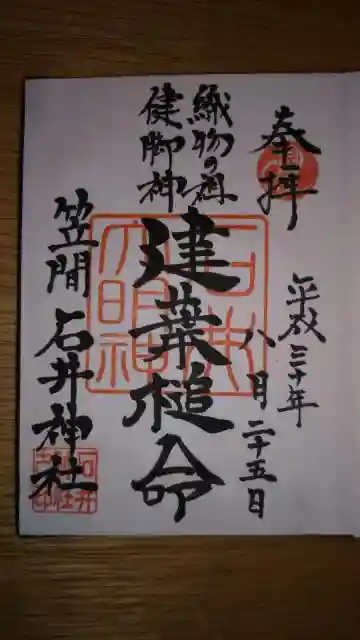 奉拝
平成三十年
八月二十五日
織物の祖
健脚神
建葉槌命
笠間
石井神社
石井大明神